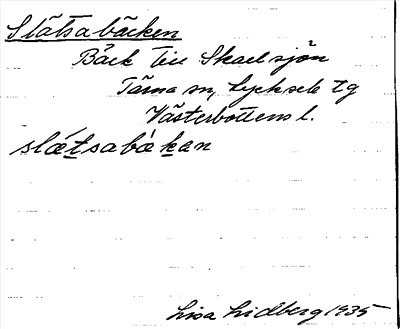 Slätsabäcken
Bäck till Skaelsjön
Tärna sn, Lycksele tg
Västerbottens l.
slǽtsabǽkan
Lisa Lidberg 1935